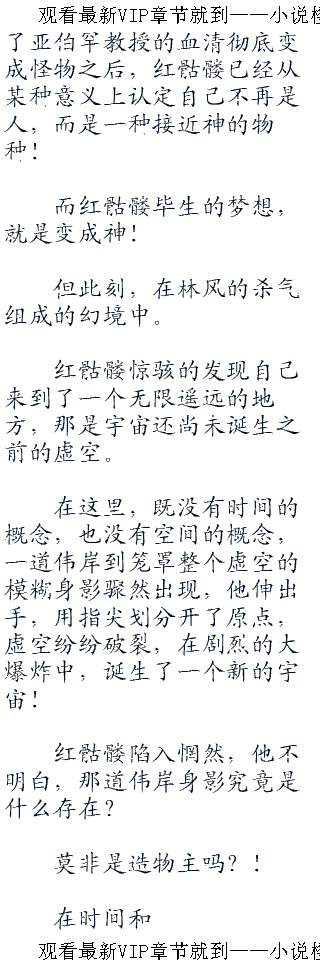 观看最新VIP章节就到——小说
了亚伯罕教授的血清彻底变
成怪物之后，红骷髅已经从
某种意义上认定自己不再是
人，而是一种接近神的物
种！
而红骷髅毕生的梦想，
就是变成神！
但此刻，在林风的杀气
组成的幻境中。
红骷髅惊骇的发现自己
来到了一个无限遥远的地
方，那是宇宙还尚未诞生之
前的虚空。
在这里，既没有时间的
概念，也没有空间的概念，
一道伟岸到笼罩整个虚空的
模糊身影骤然出现，他伸出
手，用指尖划分开了原点，
虚空纷纷破裂，在剧烈的大
爆炸中，诞生了一个新的宇
宙！
红骷髅陷入惘然，他不
明白，那道伟岸身影究竟是
什么存在？
莫非是造物主吗？！
在时间和
观看最新VIP章节就到——小说